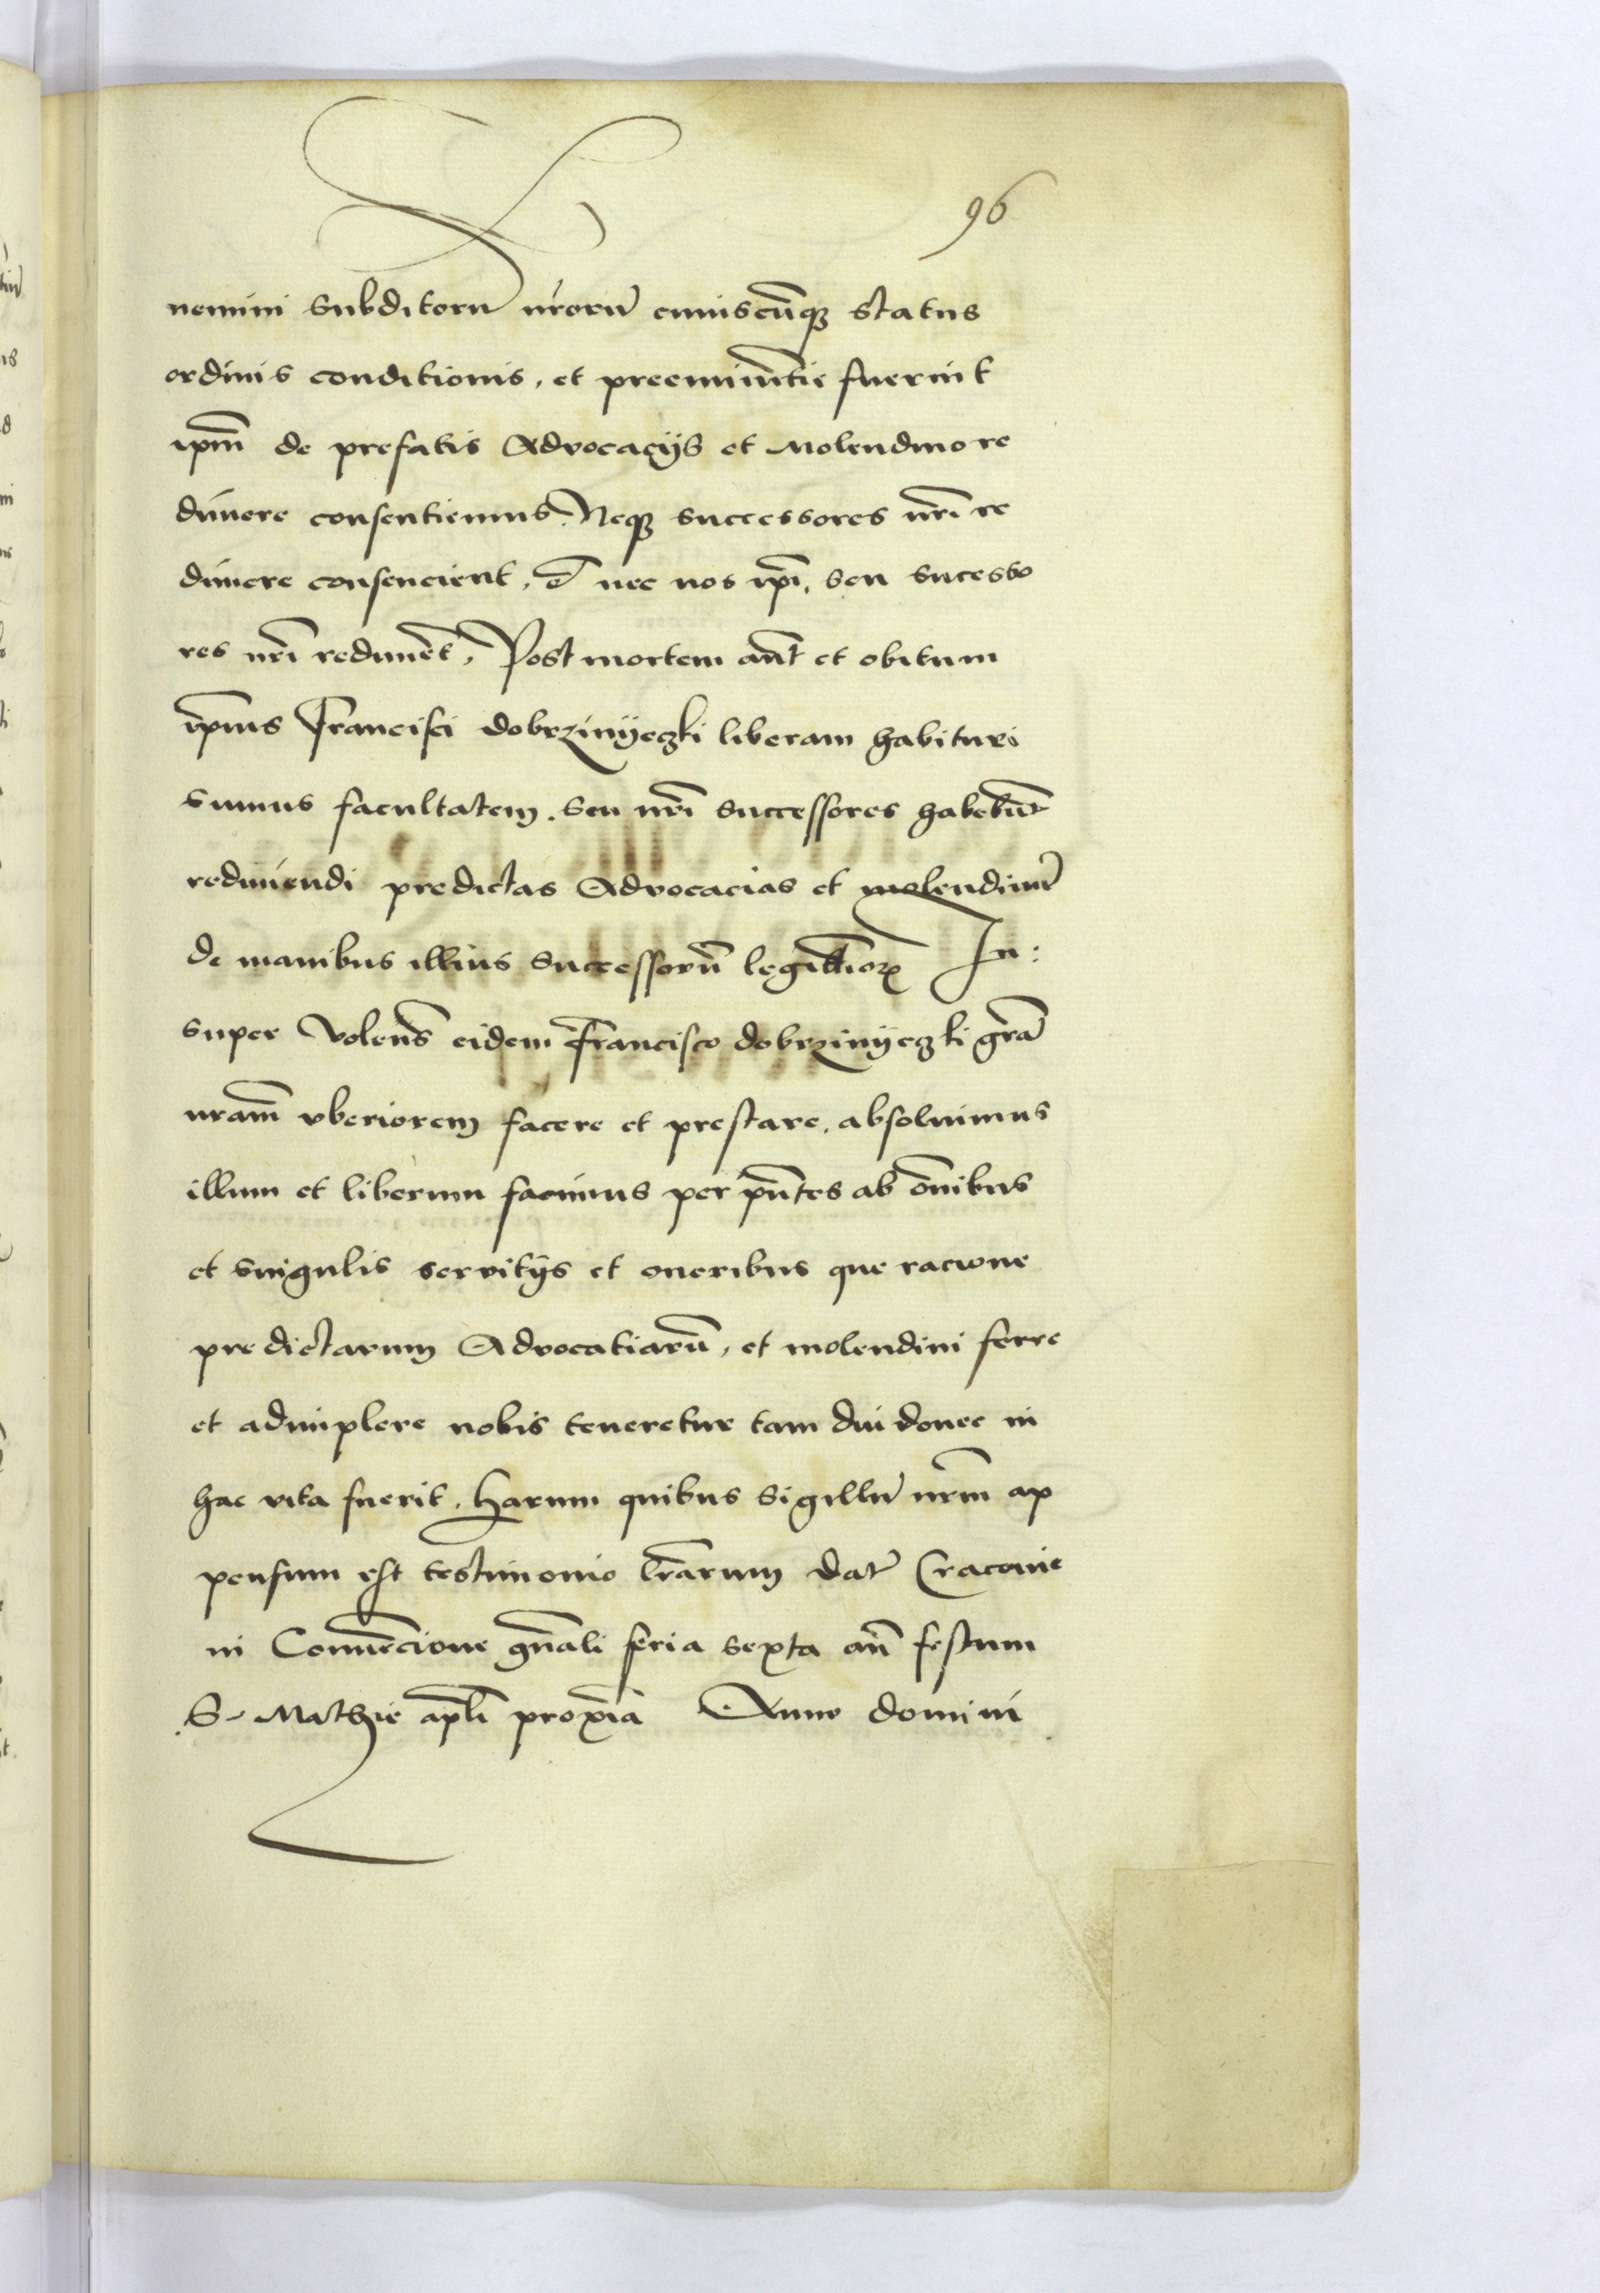 96
nemini subditorũ nr̃orũ cuiuscũqꝫ status
ordinis conditionis, et preeminẽtie fuerint
ip̃m de prefatis Advocacijs et Molendino re
dimere consentiemus. Neqꝫ successores nr̃i re
dimere consencient, nec nos ip̃i, seu sucesso
res nr̃i redimẽt, Post mortem aũt et obitum
ip̃ius Francisci dobrzinijeczki liberam habituri
sumus facultatem. seu nr̃i successores habebũt
redimendi predictas Advocacias et molendinũ
de manibus illius successorũ legittĩoꝝ In:
super Volens̃ eidem Francisco dobrzinijeczki gr̃a
nr̃am vberiorem facere et prestare, absoluimus
illum et liberum facimus per p̃ntes ab õnibus
et singulis servitijs et oneribus que racione
predictarum Advocatiarũ, et molendini ferre
et adimplere nobis teneretur tam diu donec in
hac vita fuerit, Harum quibus Sigillũ nr̃m ap
pensum est testimonio lr̃arum dat̃ Cracouie
in Conuẽcione gñali feria sexta añ festum
S. Mathie ap̃li prox̃ia Anno domini